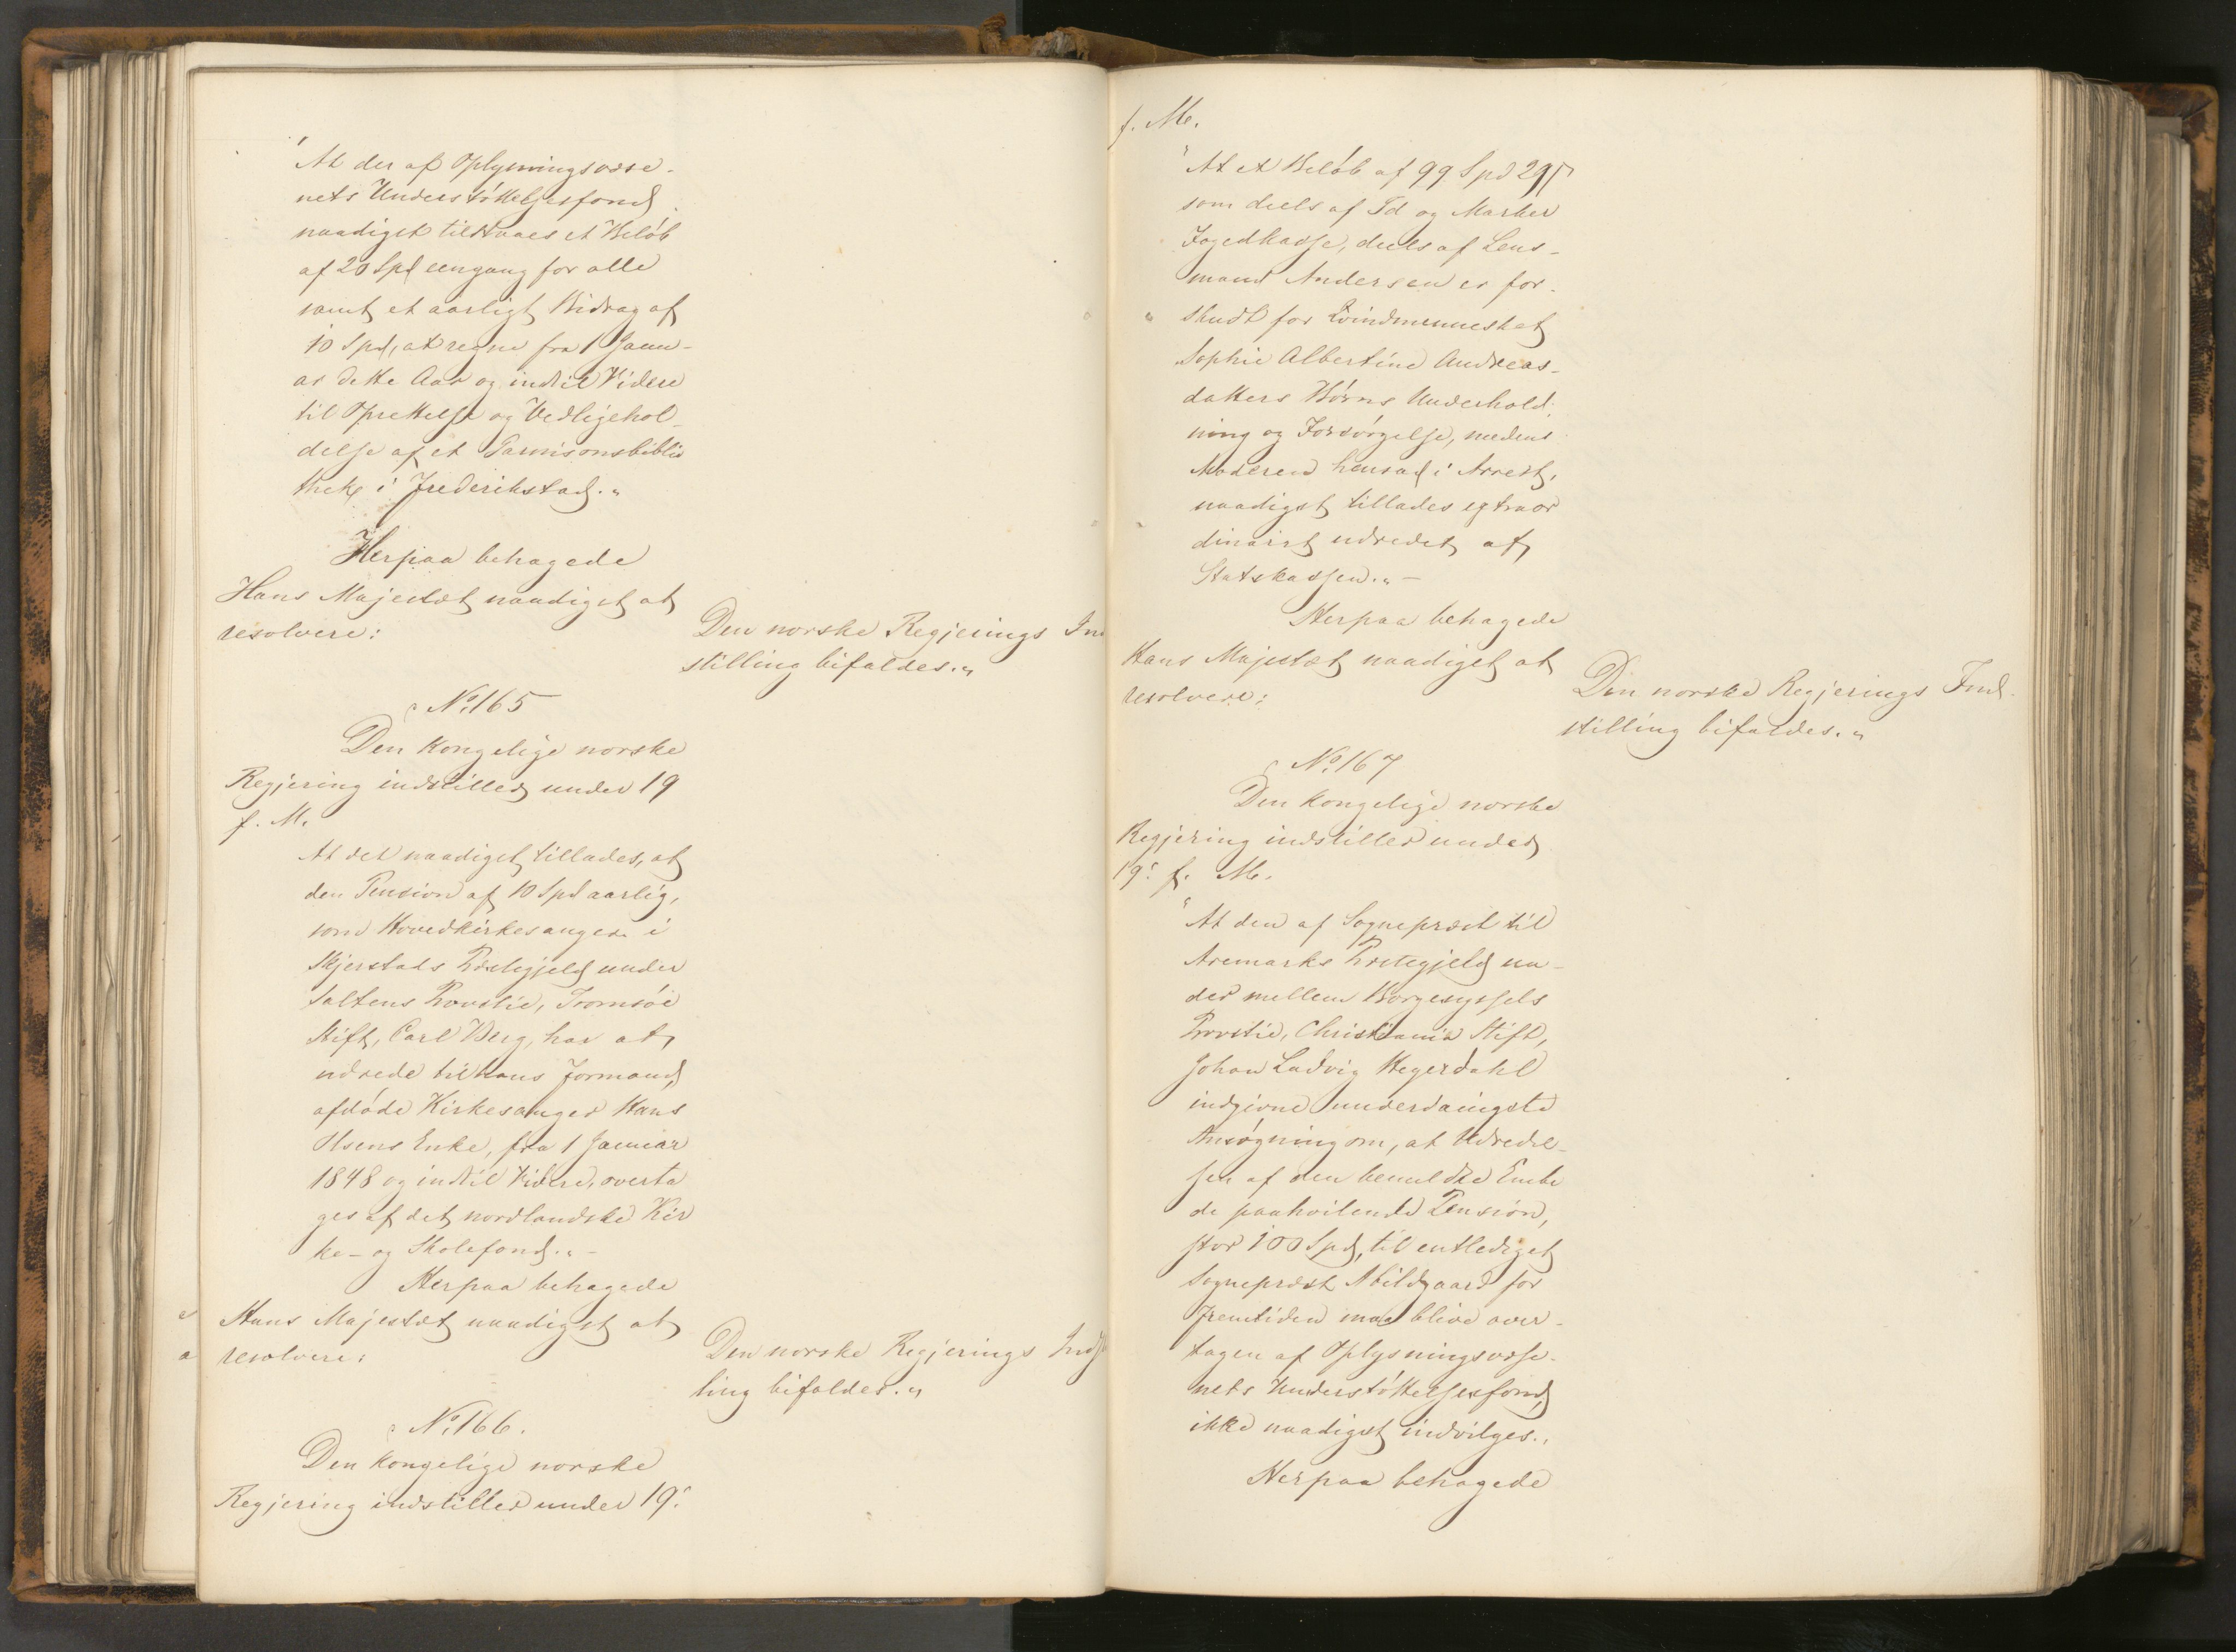 "At der af Oplysningsvæse-
nets Understøttelsesfond
naadigst tilstaaes et Beløb
af 20 Spd eengang for alle
samt et aarligt Bidrag af
10 Spd, at regne fra 1 Janu-
ar dette Aar og indtil Videre
til Oprettelse og Vedligehol-
delse af et Garnisonsbiblio
thek i Frederikstad."
Herpaa behagede
Hans Majestæt naadigst at
resolvere:
Den norske Regjerings Ind
stilling bifaldes."
No. 165
Den kongelige norske
Regjering indstiller under 19
f. M.
At det naadigst tillades, at
den Pension af 10 Spd aarlig,
som Hovedkirkesanger i
Skjerstads Præstegjeld under
Saltens Provstie, Tromsöe
Stift, Carl Berg, har at
udrede til hans Formand,
afdøde Kirkesanger Hans
Olsens Enke, fra 1 Januar
1848 og indtil Videre, overta
ges af det nordlandske Kir
ke- og Skolefond." -
Herpaa behagede
Hans Majestæt naadigst at
resolvere:
Den norske Regjerings Indstil
ling bifaldes."
No. 166.
Den kongelige norske
Regjering indstiller under 19.
f. M.
"At et Beløb af 99 Spd 29 s
som deels af Id og Marker
Fogedkasse, deels af Lens-
mand Andersen er for-
skudt for Qvindmennesket
Sophie Albertine Andreas-
datters Børns Underhold-
ning og Forsørgelse, medens
Moderen hensad i Arrest,
naadigst tillades extraor
dinairt udredet af
Statskassen." -
Herpaa behagede
Hans Majestæt naadigst at
resolvere:
Den norske Regjerings Ind-
stilling bifaldes."
No. 167
Den kongelige norske
Regjering indstiller under
19. f. M.
"At den af Sognepræst til
Aremarks Præstegjeld un-
der mellem Borgesyssels
Provstie, Christiania Stift,
Johan Ludvig Hegerdahl
indgivne underdanigste
Ansøgning om, at Udredel-
sen af den bemeldte Embe
de paahvilende Pension,
stor 100 Spd, til entlediget
Sognepræst Abildgaard for
Fremtiden maa blive over-
tagen af Oplysningsvæse-
nets Understøttelsesfond,
ikke naadigst indvilges."
Herpaa behagede